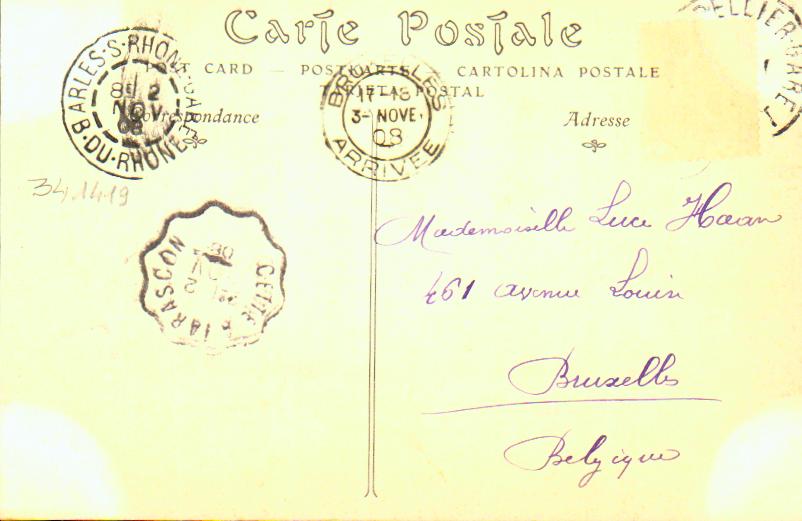 Carte Postale
POST CARD — POSTKARTE — CARTOLINA POSTALE
TARJETA POSTAL
Correspondance
Adresse
ARLES-S-RHONE-GARE
8E 2
NOV
08
B.DU-RHONE
BRUXELLES
17-18
3- NOVE.
08
ARRIVEE
PELLIER-GARE
34.14.19
CETTE A TARASCON
2
08
Mademoiselle Luce Haan
461 avenue Louise
Bruxelles
Belgique